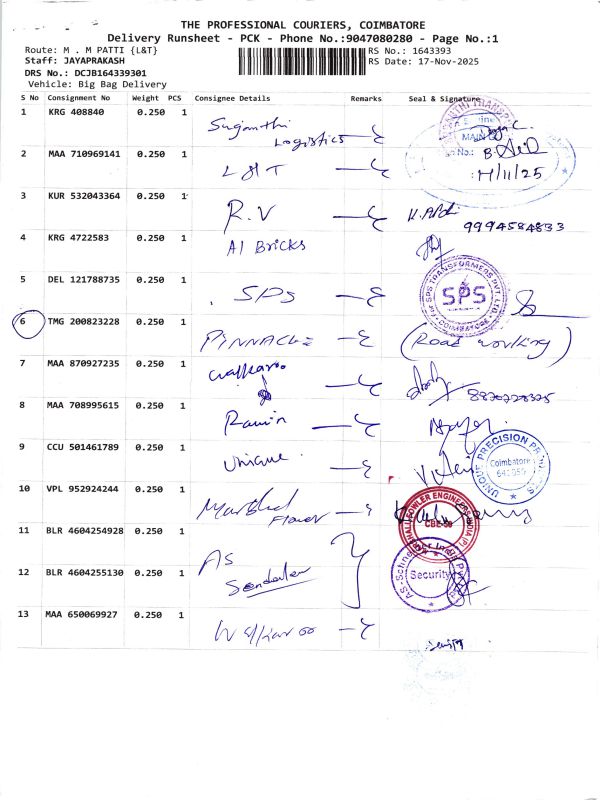 THE PROFESSIONAL COURIERS, COIMBATORE
Delivery Runsheet - PCK - Phone No.:9047080280 - Page No.:1
Route: M . M PATTI {L&T}
RS No.: 1643393
Staff: JAYAPRAKASH
RS Date: 17-Nov-2025
DRS No.: DCJB164339301
Vehicle: Big Bag Delivery
S No Consignment No Weight PCS Consignee Details Remarks Seal & Signature
1 KRG 408840 0.250 1 Suganthi Logistics
MAIN
No.: B.
17/11/25
2 MAA 710969141 0.250 1 L&T
3 KUR 532043364 0.250 1 R.V 9994584833
4 KRG 4722583 0.250 1 AI Bricks
5 DEL 121788735 0.250 1 SPS
for SPS TRANSFORMERS PVT. LTD.
SPS
COIMBATORE
6 TMG 200823228 0.250 1 PINNACLE (Road working)
7 MAA 870927235 0.250 1
8 MAA 708995615 0.250 1
9 CCU 501461789 0.250 1 Unique
UNIQUE PRECISION
Coimbatore
10 VPL 952924244 0.250 1 Marshal Flower
MARSHALL FOWLER ENGINEERS INDIA (P)
11 BLR 4604254928 0.250 1 AS
12 BLR 4604255130 0.250 1
Security
13 MAA 650069927 0.250 1